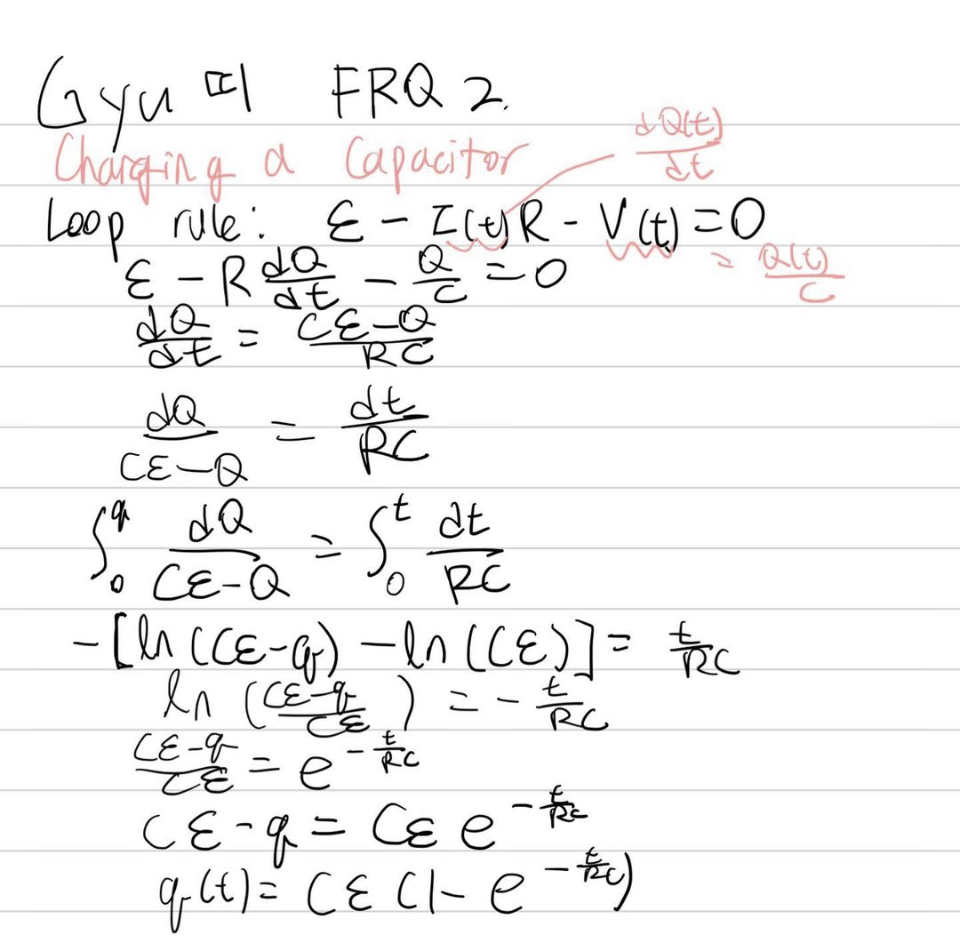 Gyu 피 FRQ 2.
Charging a Capacitor
dQ(t)/dt
Loop rule: ε - I(t)R - V(t) = 0
= Q(t)/C
ε - R dQ/dt - Q/C = 0
dQ/dt = (Cε-Q)/RC
dQ/(Cε-Q) = dt/RC
∫₀^q dQ/(Cε-Q) = ∫₀^t dt/RC
-[ln(Cε-q) - ln(Cε)] = t/RC
ln((Cε-q)/Cε) = -t/RC
(Cε-q)/Cε = e^(-t/RC)
Cε-q = Cε e^(-t/RC)
q(t) = Cε(1-e^(-t/RC))